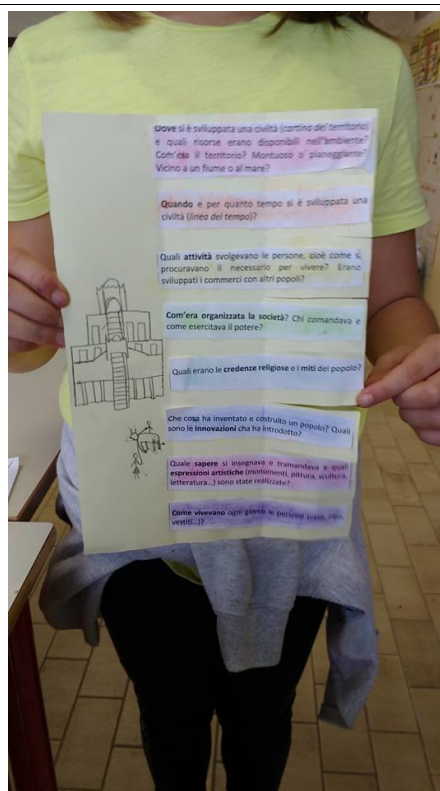 Dove si è sviluppata una civiltà (cartina del territorio)
e quali risorse erano disponibili nell'ambiente?
Com'era il territorio? Montuoso o pianeggiante?
Vicino a un fiume o al mare?
Quando e per quanto tempo si è sviluppata una
civiltà (linea del tempo)?
Quali attività svolgevano le persone, cioè come si
procuravano il necessario per vivere? Erano
sviluppati i commerci con altri popoli?
Com'era organizzata la società? Chi comandava e
come esercitava il potere?
Quali erano le credenze religiose e i miti del popolo?
Che cosa ha inventato e costruito un popolo? Quali
sono le innovazioni cha ha introdotto?
Quale sapere si insegnava e tramandava e quali
espressioni artistiche (monumenti, pittura, scultura,
letteratura...) sono state realizzate?
Come vivevano ogni giorno le persone (case, cibo,
vestiti...)?